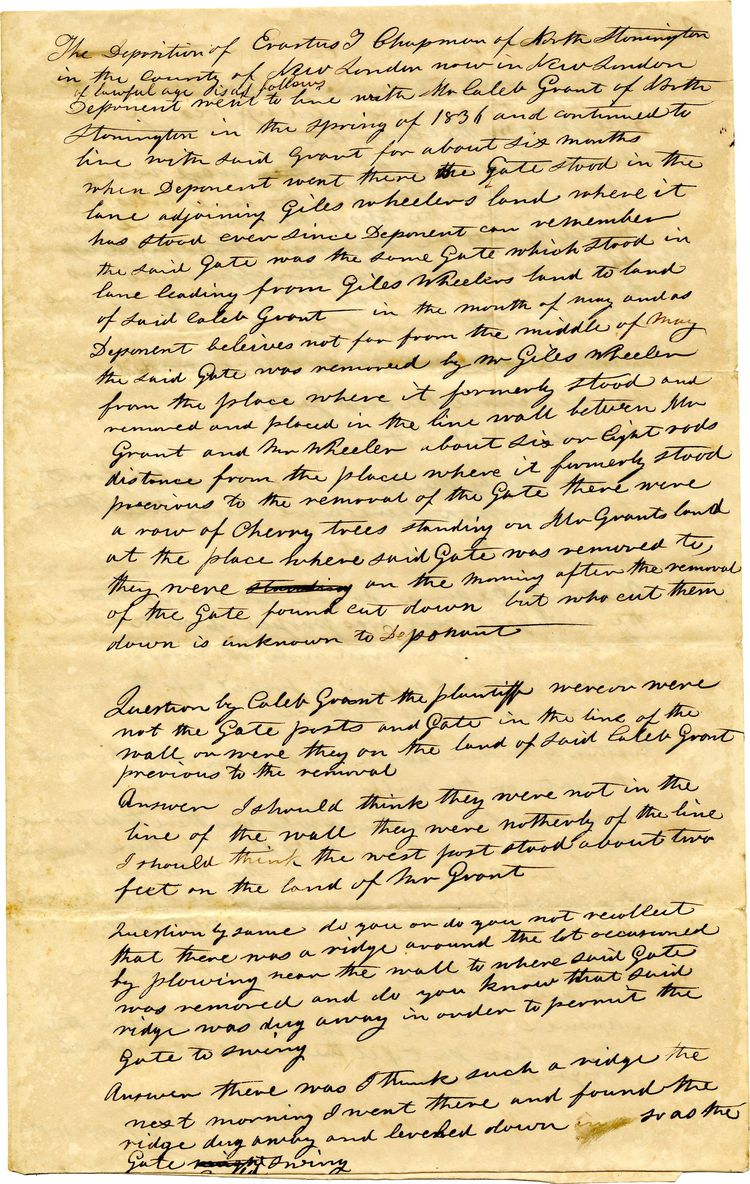 The Deposition of Erastus T Chapman of North Stonington
in the county of New London now in New London
of lawful age
follows
Deponent went to live with Mr Caleb Grant of North
Stonington in the spring of 1836 and continued to
live with said Grant for about six months
when Deponent went there the Gate stood in the
lane adjoining Giles wheelers land where it
has stood ever since Deponent can remember
the said Gate was the same Gate which stood in
lane leading from Giles Wheelers land to land
of said Caleb Grant in the month of may and as
Deponent beleives not far from the middle of May
the said Gate was removed by Mr Giles Wheeler
from the place where it formerly stood and
removed and placed in the line wall between Mr
Grant and Mr Wheeler about six or Eight rods
distance from the place where it formerly stood
previous to the removal of the Gate there were
a row of Cherry trees standing on Mr Grants land
at the place where said Gate was removed to,
they were standing on the morning after the removal
of the Gate found cut down but who cut them
down is unknown to Deponant
Question by Caleb Grant the plaintiff were or were
not the Gate posts and Gate in the line of the
wall or were they on the land of said Caleb Grant
previous to the removal
Answer I should think they were not in the
line of the wall they were notherly of the line
I should think the west post stood about two
feet on the land of Mr Grant
Question by same do you or do you not recollect
that there was a ridge around the lot occasioned
by plowing near the wall to where said Gate
was removed and do you know that said
ridge was dug away in order to permit the
Gate to swing
Answer there was I think such a ridge the
next morning I went there and found the
ridge dug away and leveled down so as the
Gate might swing